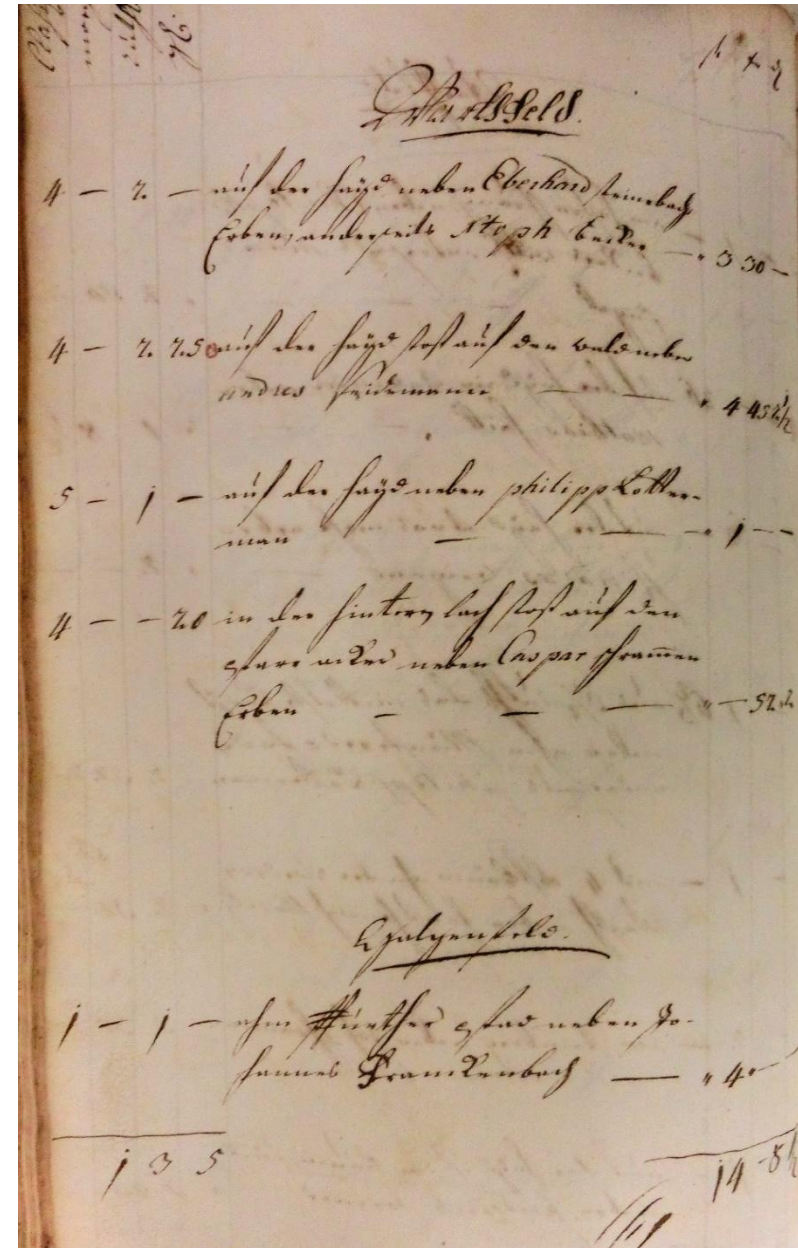 f x ₰
Marksfeld.
4 — 2. — auf der Hayd neben Eberhard steinebach
Erben, anderseits Stoph becker — " 3 30 —
4 — 2. 25 auf der Hayd stost auf den wald neben
andres — — " 4 45 2/2
5 — 1 — auf der Hayd neben philipp Lotter-
man — — " 1 — —
4 — — 20 in der hintern lach stost auf den
pfarr acker neben Caspar schrammen
Erben — — — " — 52 2
Galgenfeld.
1 — 1 — ahm further pfad neben Jo-
hannes Franckenbach — " 4 "
1 3 5
14 8